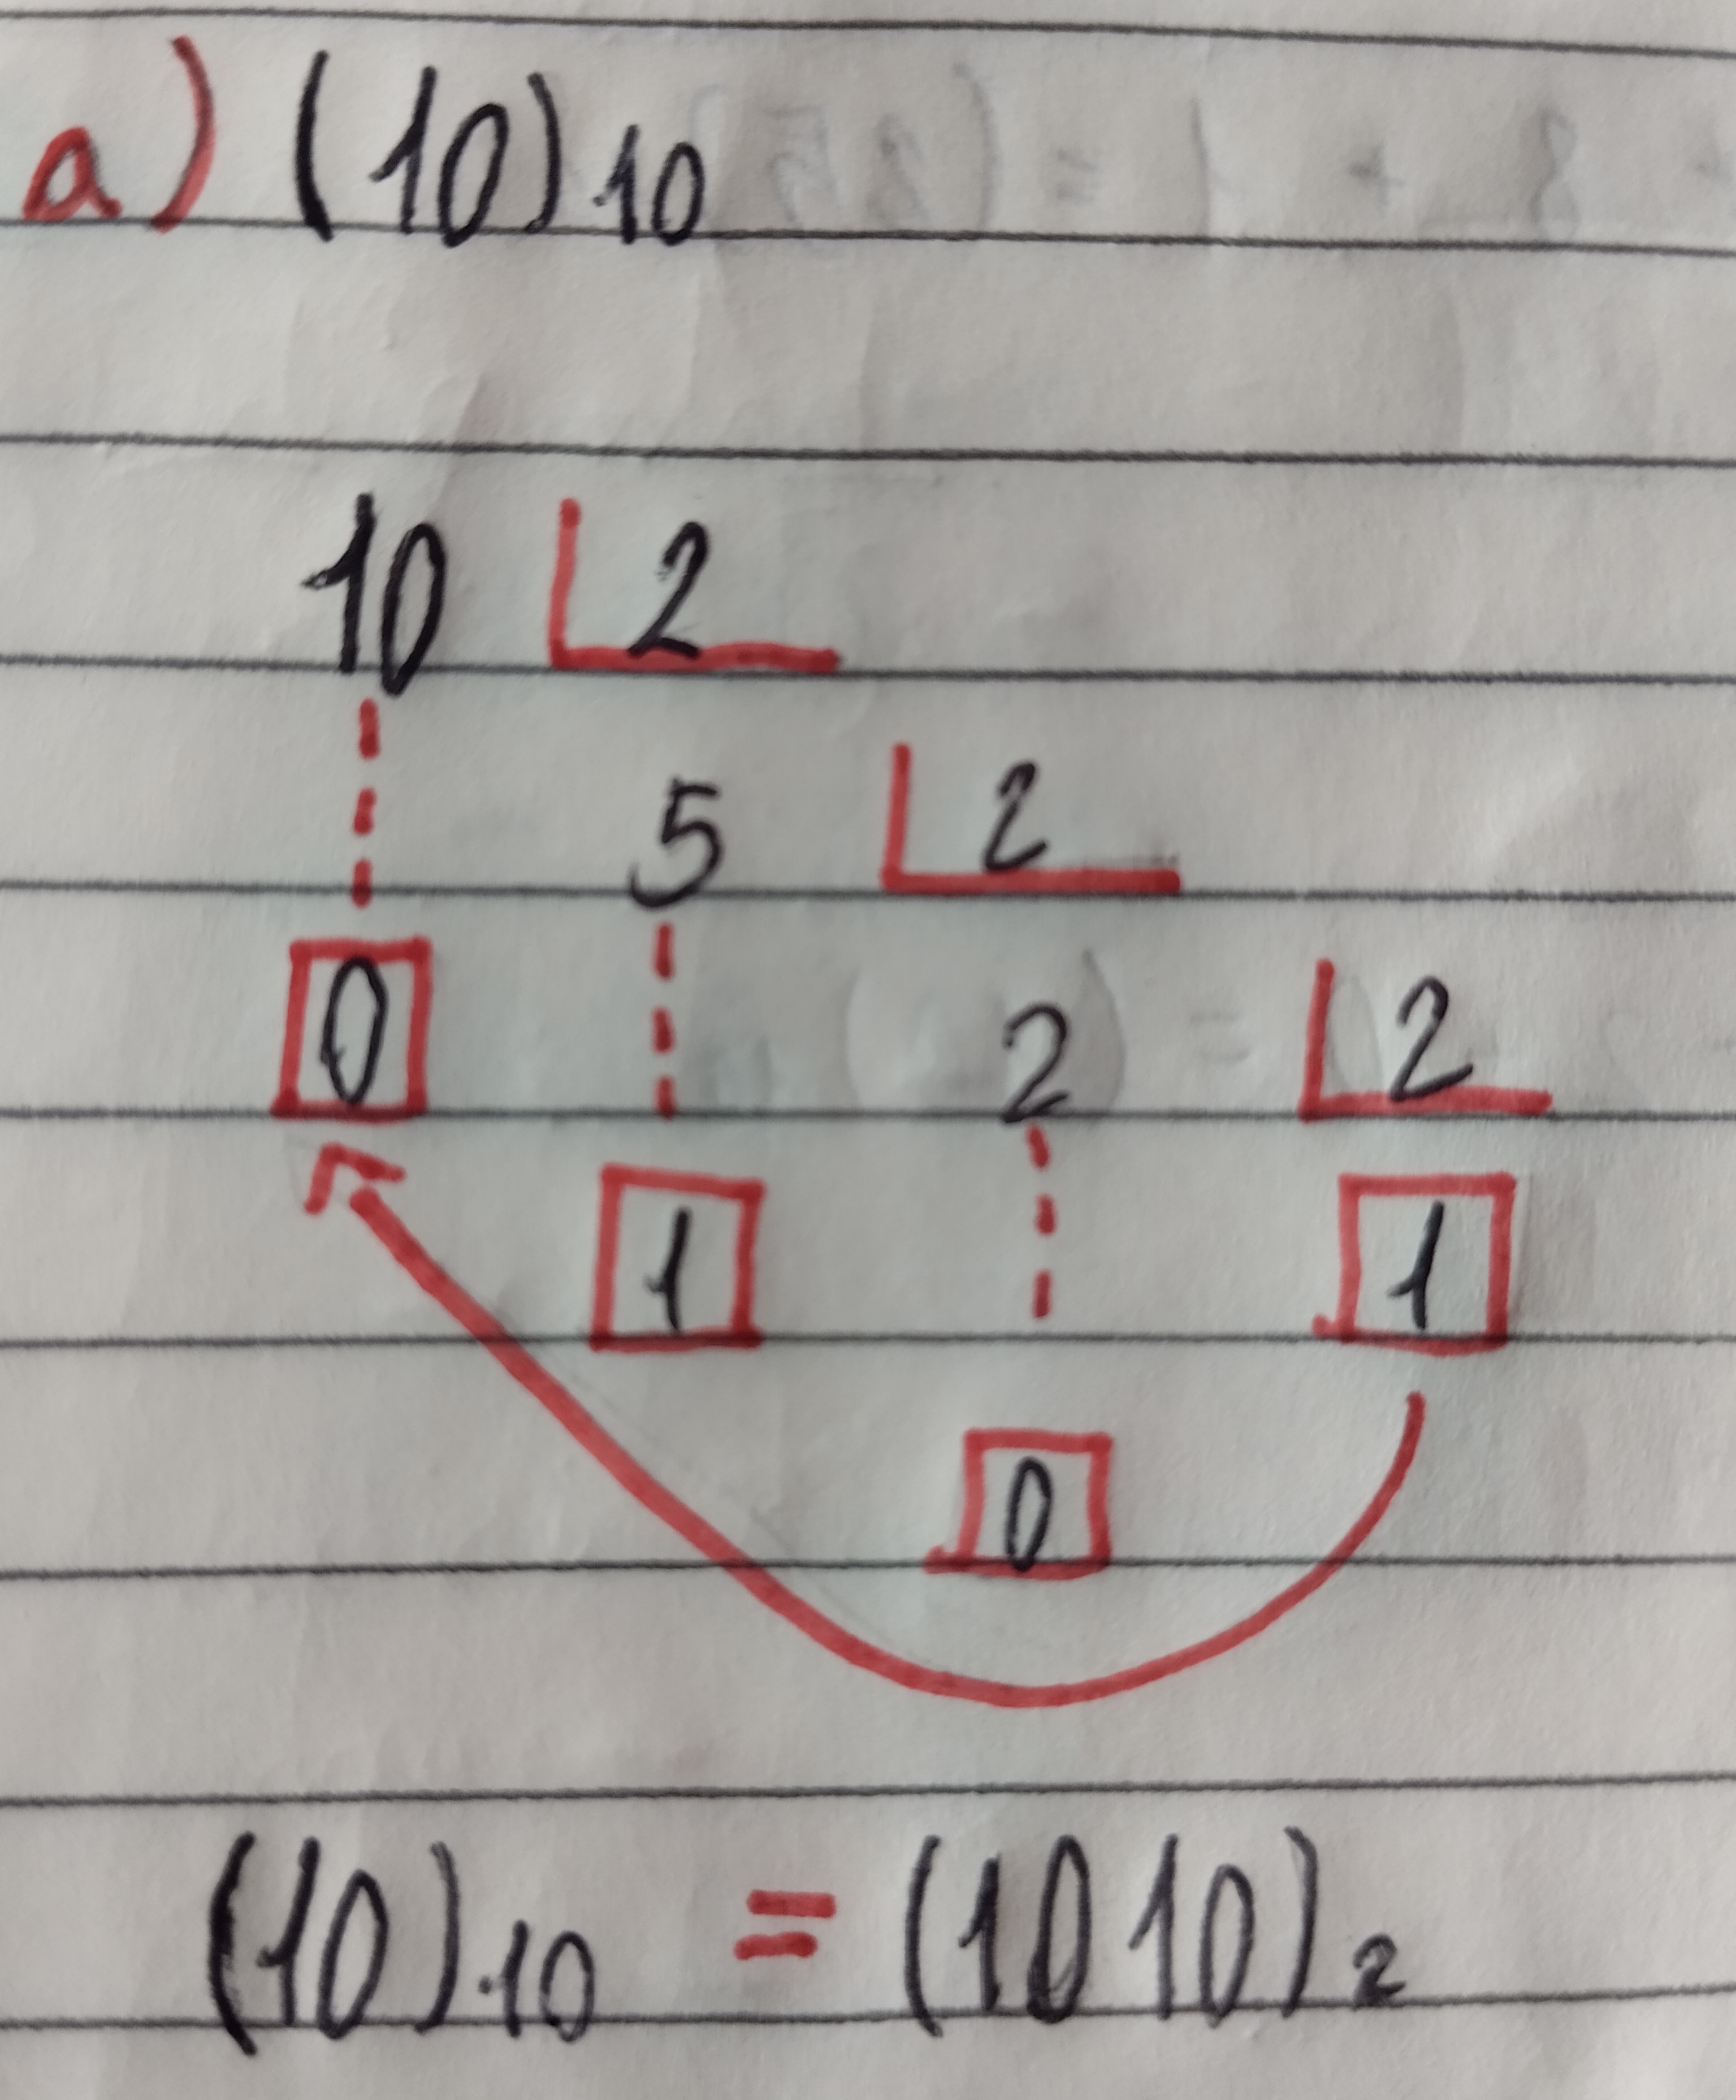 a) (10)10
10 2
5 2
0 2 2
1 1
0
(10)10 = (1010)2